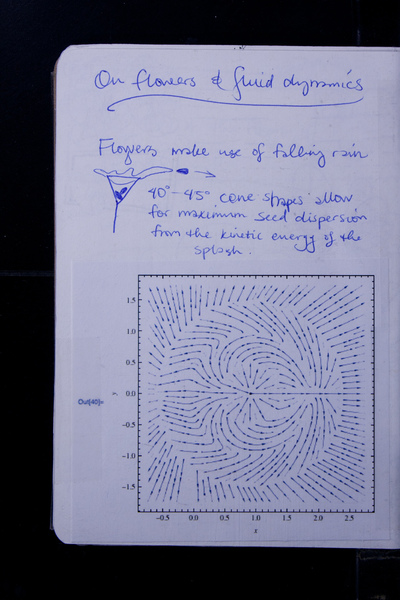 On flowers & fluid dynamics
Flowers make use of falling rain
40°-45° cone shapes allow
for maximum seed dispersion
from the kinetic energy of the
splash.
1.5
1.0
0.5
y
0.0
Out[40]=
-0.5
-1.0
-1.5
-0.5 0.0 0.5 1.0 1.5 2.0 2.5
x